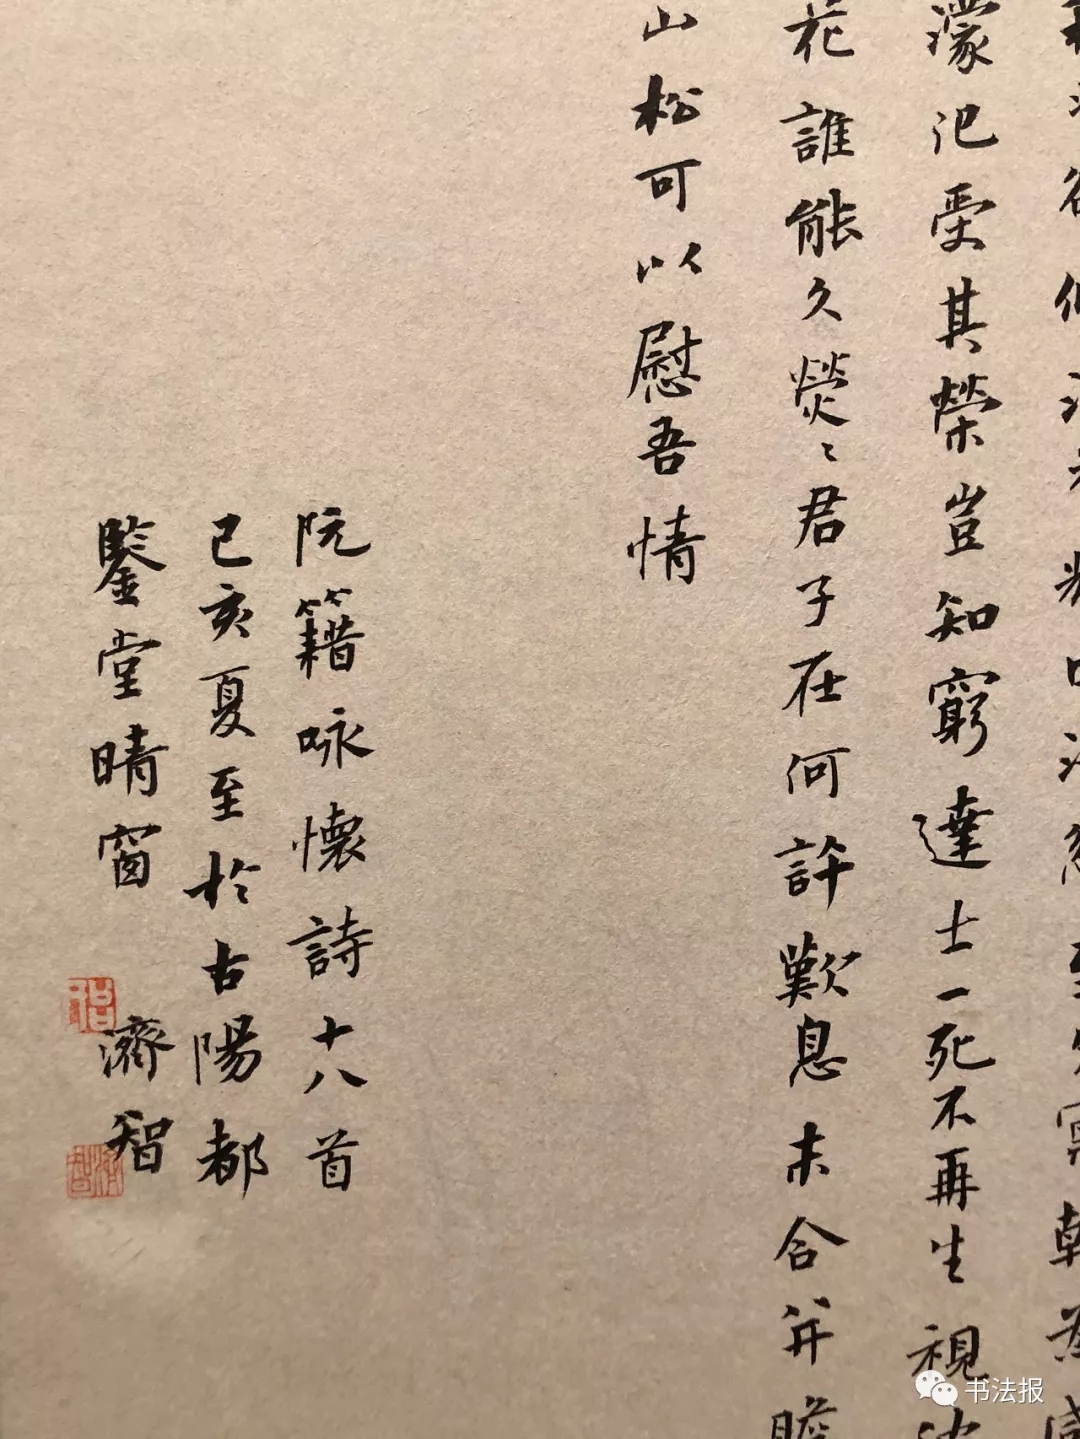 濛汜受其榮豈知窮達士一死不再生視
花誰能久熒〻君子在何許歎息未合并瞻
山松可以慰吾情
阮籍咏懷詩十八首
己亥夏至於古陽都
鑒堂晴窗 濟智
书法报